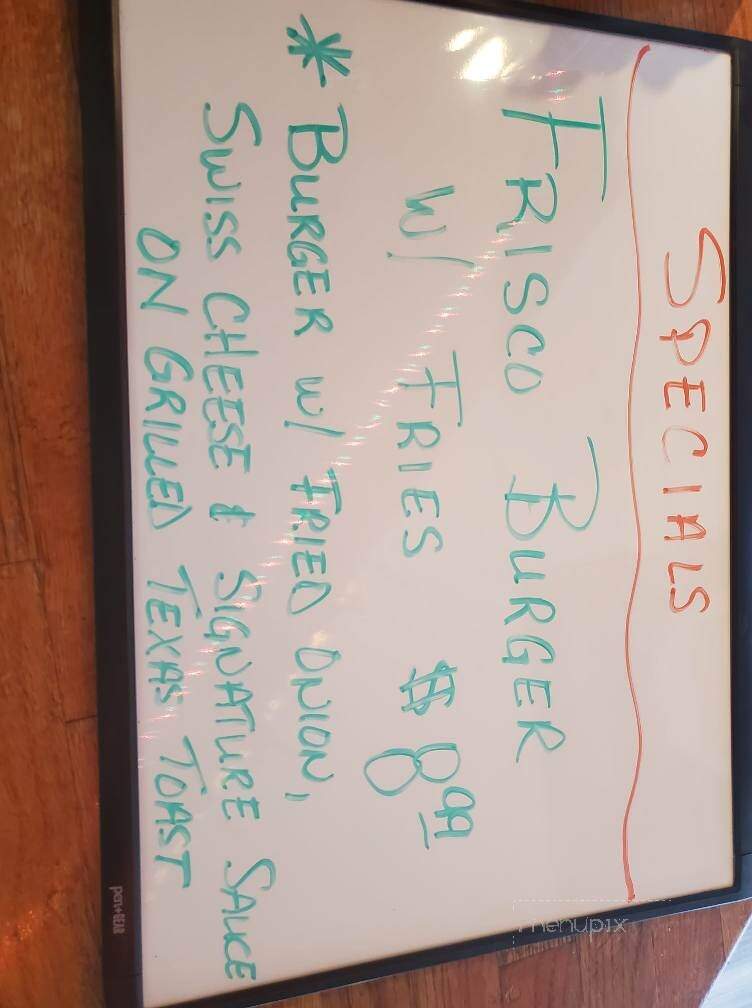 SPECIALS
FRISCO BURGER
W/ FRIES $8.99
* BURGER W/ FRIED ONION,
SWISS CHEESE & SIGNATURE SAUCE
ON GRILLED TEXAS TOAST
pen+GEAR
menupix